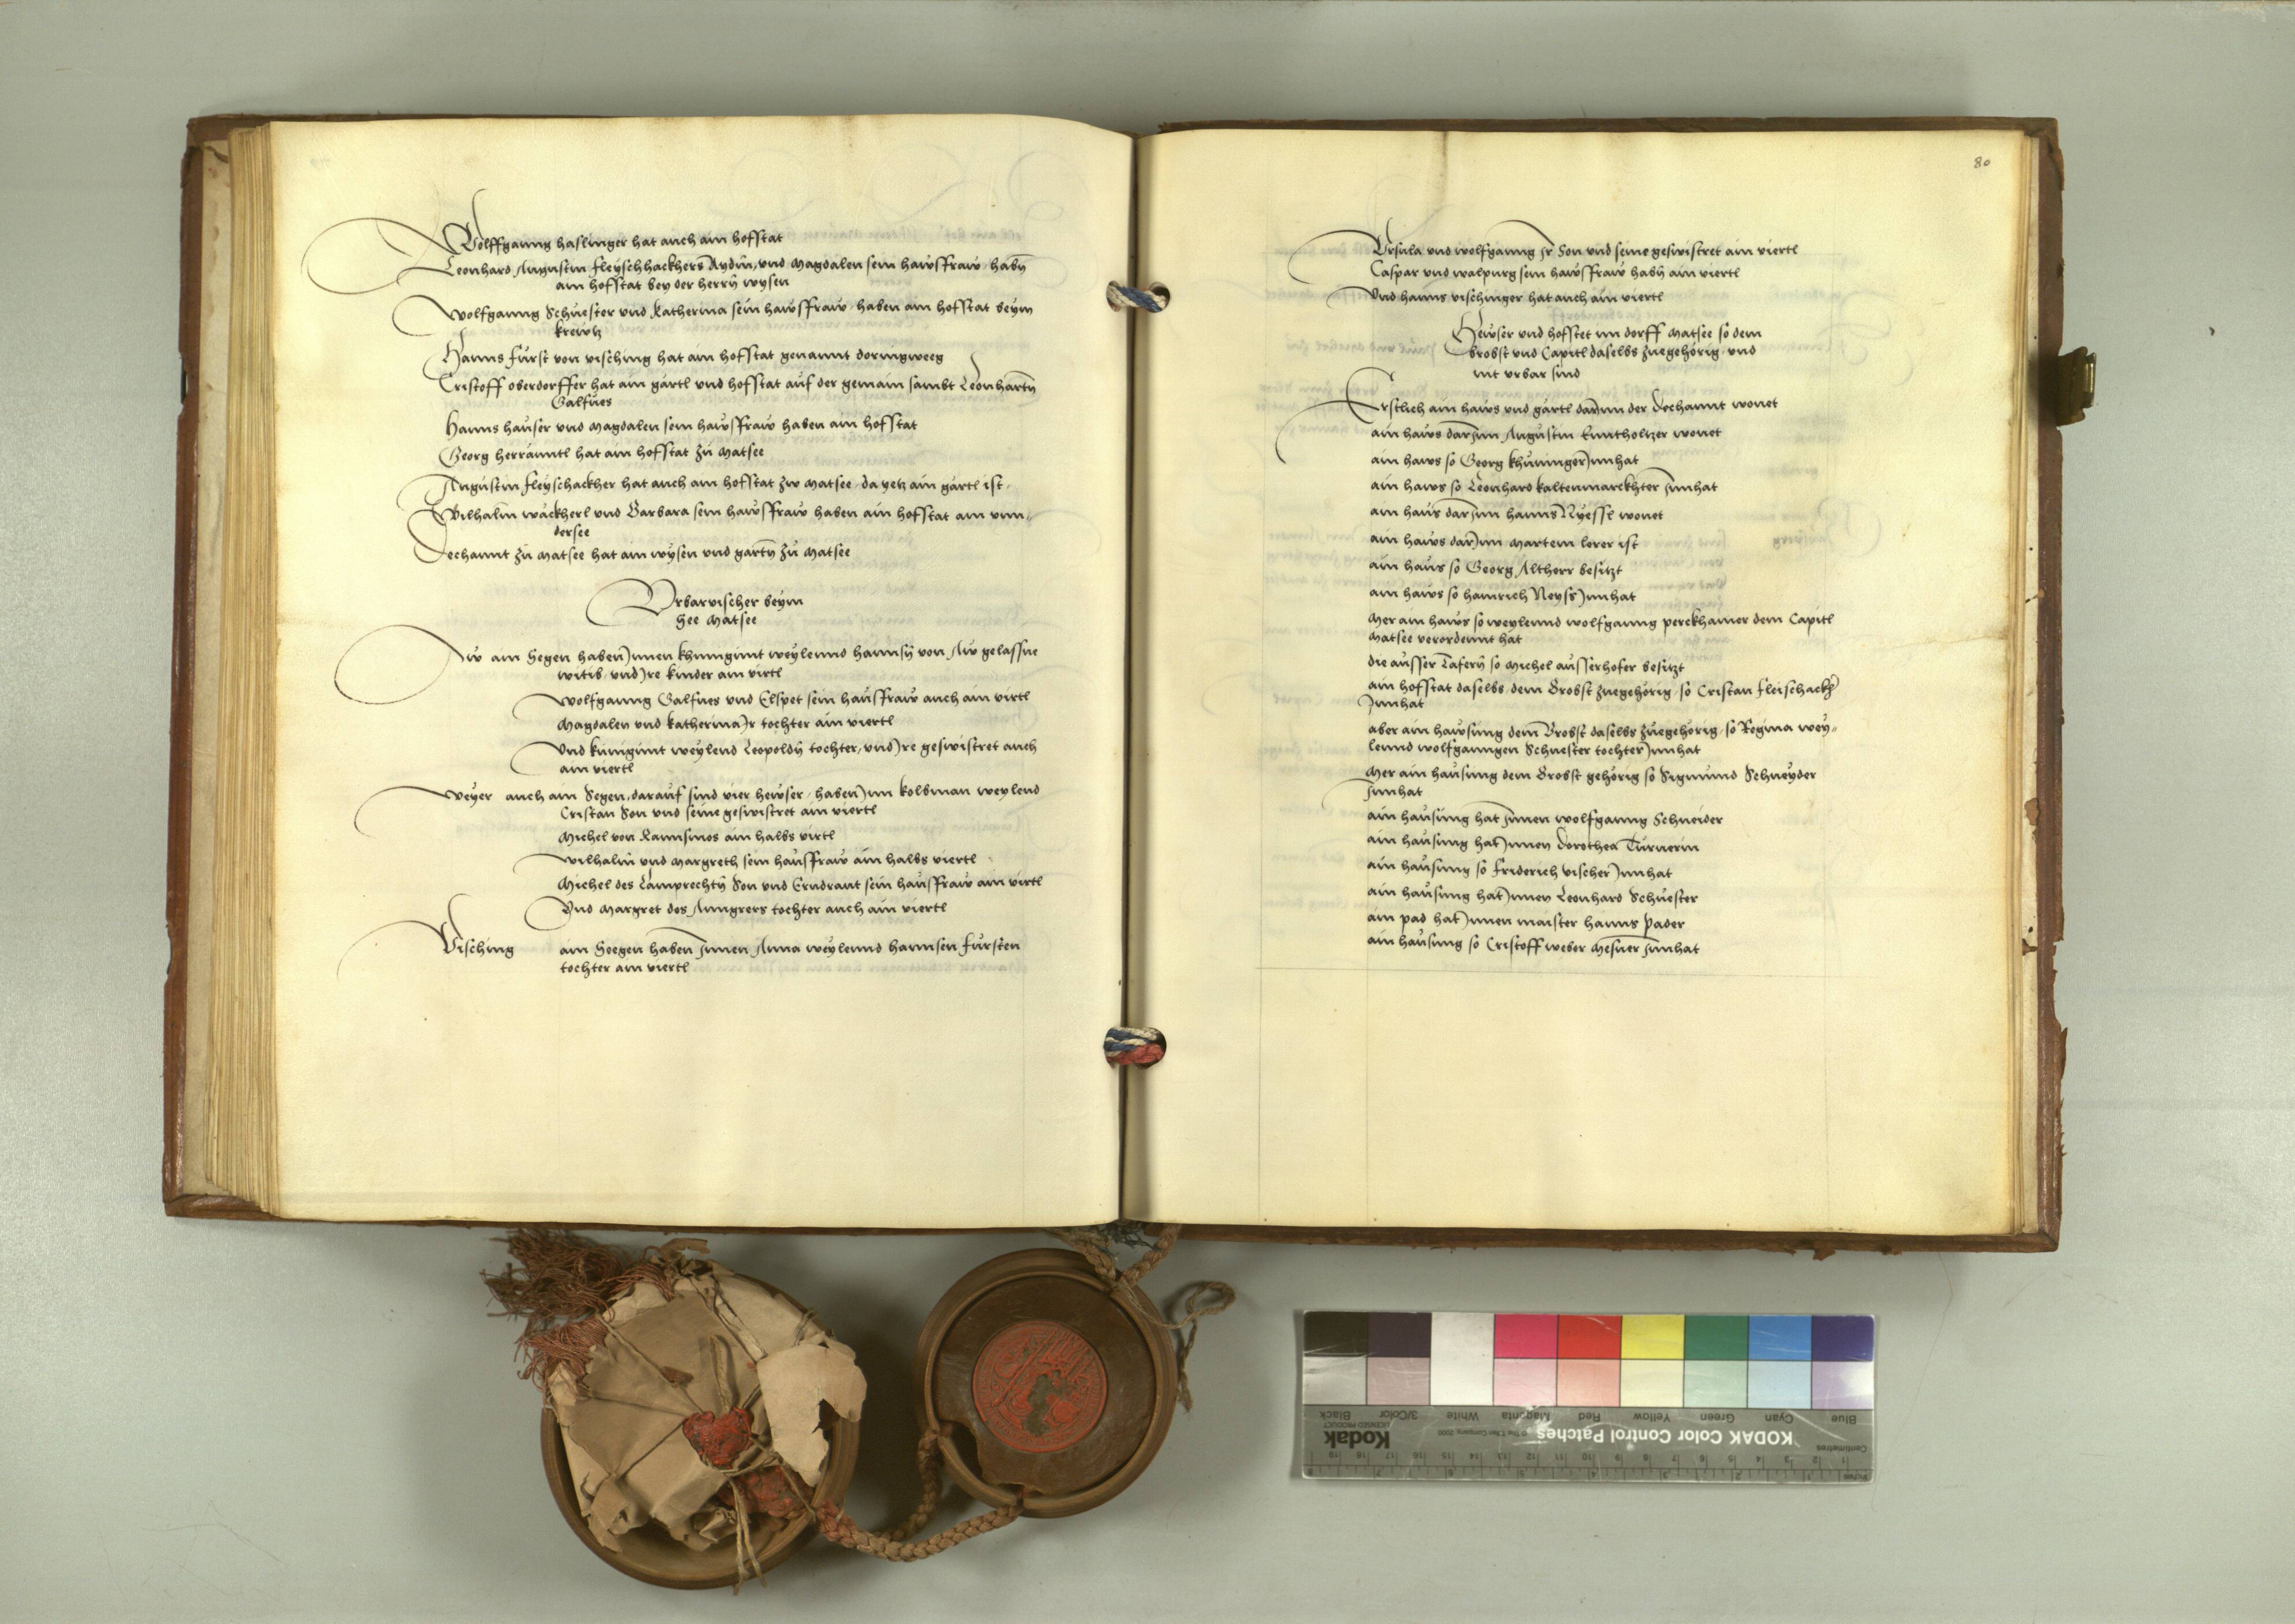 Wolffganng haslinger hat auch ain hofstat
Leonhard Augustin fleyschhackhers Aydm, und Magdalen sein hawsfraw, habn
ain hofstat bey der herrn wysen
Wolfganng Schuester und Katherina sein hawsfraw, haben ain hofstat beym
krewtz
Hanns fürst von visching hat ain hofstat genannt doringweeg
Cristoff oberdorffer hat ain gärtl und hofstat auf der gemain sambt Leonhartn
Galfues
Hanns hauser und Magdalen sein hawsfraw haben ain hofstat
Georg herräntl hat ain hofstat zu Matsee
Augustin fleyschackher hat auch ain hofstat zw Matsee, da yetz ain gärtl ist,
Wilhalm wäckherl und Barbara sein hawsfraw haben ain hofstat am unn-
dersee
Dechannt zu Matsee hat ain wysen und gartn zu Matsee
Urbarvischer beym
See Matsee
Aw ain Segen haben Innen khunigunt weylennd hannsn von Aw gelassne
witib, und Ire kinder ain virtl
Wolfganng Galfues und Elspet sein hausfraw auch ain virtl
Magdalen und katherina Ir tochter ain viertl
Und kunigunt weylend Leopoldn tochter, und Ire geswistret auch
ain viertl
Weyer auch ain Segen, darauf sind vier hewser, haben Inn kolbman weylend
Cristan Son und seine geswistret ain viertl
Michel von Rannsmos ain halbs virtl
Wilhalm und Margreth sein hausfraw ain halbs viertl
Michel des Lamprechtn Son und Erndraut sein hausfraw ain virtl
Und Margret des Anngrers tochter auch ain viertl
Visching ain Seegen haben Innen Anna weylennd hannsen fürsten
tochter ain viertl
80
Ursula und wolfganng Ir Son und seine geswistret ain viertl
Caspar und walpurg sein hawsfraw habn ain viertl
Und hanns vischinger hat auch ain viertl
Hewser und hofstet im dorff Matsee so dem
brobst und Capitl daselbs zuegehörig, und
nit urbar sind
Erstlich ain haws und gärtl darInn der Dechannt wonet
ain haws darInn Augustin Enntholtzer wonet
ain haws so Georg khuninger Innhat
ain haws so Leonhard kaltenmarckhter Innhat
ain haus darInn hanns Nyessl wonet
ain haws darInn Martein lerer ist
ain haus so Georg Altherr besitzt
ain haws so hainrich Neyss Innhat
Mer ain haws so weylennd wolfganng perckhamer dem Capitl
Matsee verordennt hat
die ausser Tafern so Michel ausserhofer besitzt
ain hofstat daselbs dem Brobst zuegehörig, so Cristan fleischackher
Innhat
aber ain hawsung dem Brobst daselbs zuegehörig, so Regina wey-
lennd wolfganngen Schuester tochter Innhat
Mer ain hausung dem Brobst gehörig so Sigmund Schneyder
Innhat
ain hausung hat Innen wolfganng Schneider
ain hausung hat Innen Dorothea Turnerin
ain hausung so Friderich vischer Innhat
ain hausung hat Innen Leonhard Schuester
ain pad hat Innen maister hanns Pader
ain hausung so Cristoff weber Mesner Innhat
Blue
Cyan
Green
Yellow
Red
Magenta
White
3/Color
Black
KODAK Color Control Patches
Kodak
LICENSED PRODUCT
Centimetres
Inches